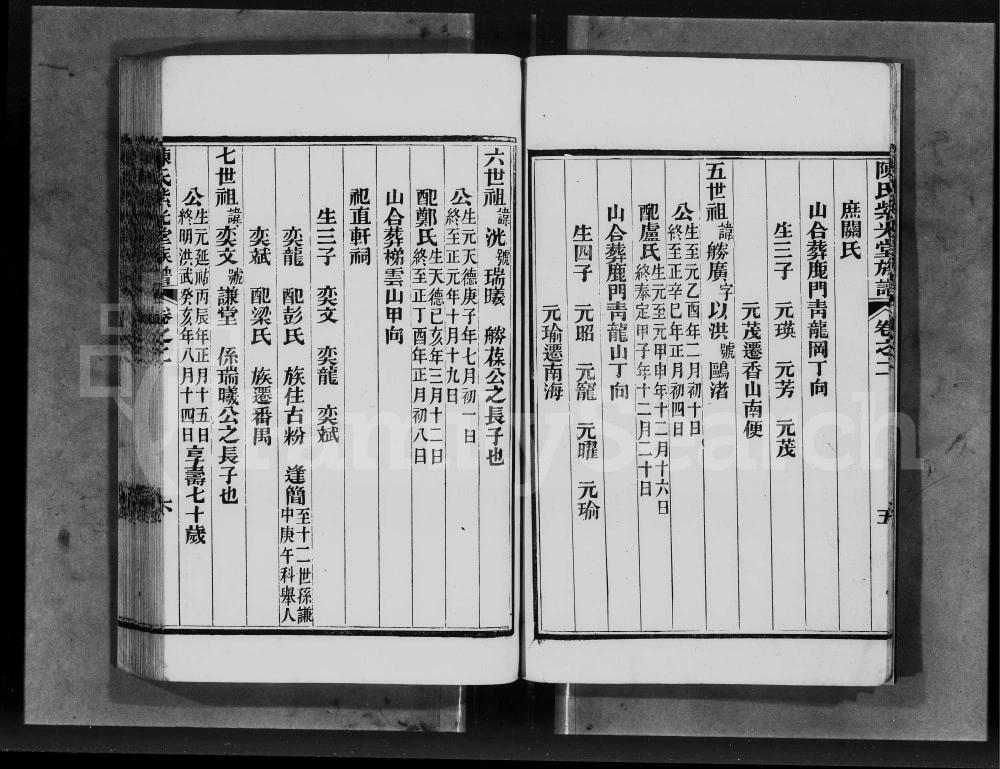 陳氏紫光堂族譜 卷之二 五
庶關氏
山合葬鹿門青龍岡丁向
生三子 元瑛 元芳 元茂
元茂遷香山南便
五世祖諱勝廣字以洪號鷗渚
公生至元乙酉年二月初十日
終至正辛巳年正月初四日
配盧氏生元至元甲申年十二月十六日
終泰定甲子年十二月二十日
山合葬鹿門青龍山丁向
生四子 元昭 元寵 元曜 元瑜
元瑜遷南海
六世祖諱洸號瑞曦 勝葆公之長子也
公生元天德庚子年七月初一日
終至正元年十月十九日
配鄭氏生天德己亥年三月十二日
終至正丁酉年正月初八日
山合葬梯雲山甲向
祀直軒祠
生三子 奕文 奕龍 奕斌
奕龍 配彭氏 族住古粉 逢簡至十二世孫謙
中庚午科舉人
奕斌 配梁氏 族遷番禺
七世祖諱奕文號謙堂 係瑞曦公之長子也
公生元延祐丙辰年正月十五日
終明洪武癸亥年八月十四日享壽七十歲
陳氏紫光堂族譜 卷之二 六
FamilySearch